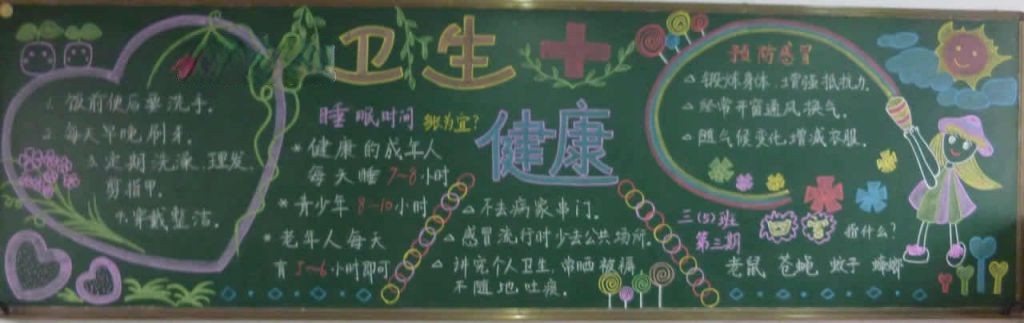 卫生
健康
1. 饭前便后要洗手。
2. 每天早晚刷牙。
3. 定期洗澡、理发、
剪指甲。
4. 穿戴整洁。
睡眠时间 多长为宜?
* 健康的成年人
每天睡7~8小时
* 青少年8~10小时
* 老年人每天
睡5~6小时即可
△不去病家串门。
△感冒流行时少去公共场所。
△讲究个人卫生,常晒被褥
不随地吐痰。
预防感冒
△锻炼身体,增强抵抗力。
△经常开窗通风换气。
△随气候变化,增减衣服。
三(5)班
第三期
四害 指什么?
老鼠 苍蝇 蚊子 蟑螂